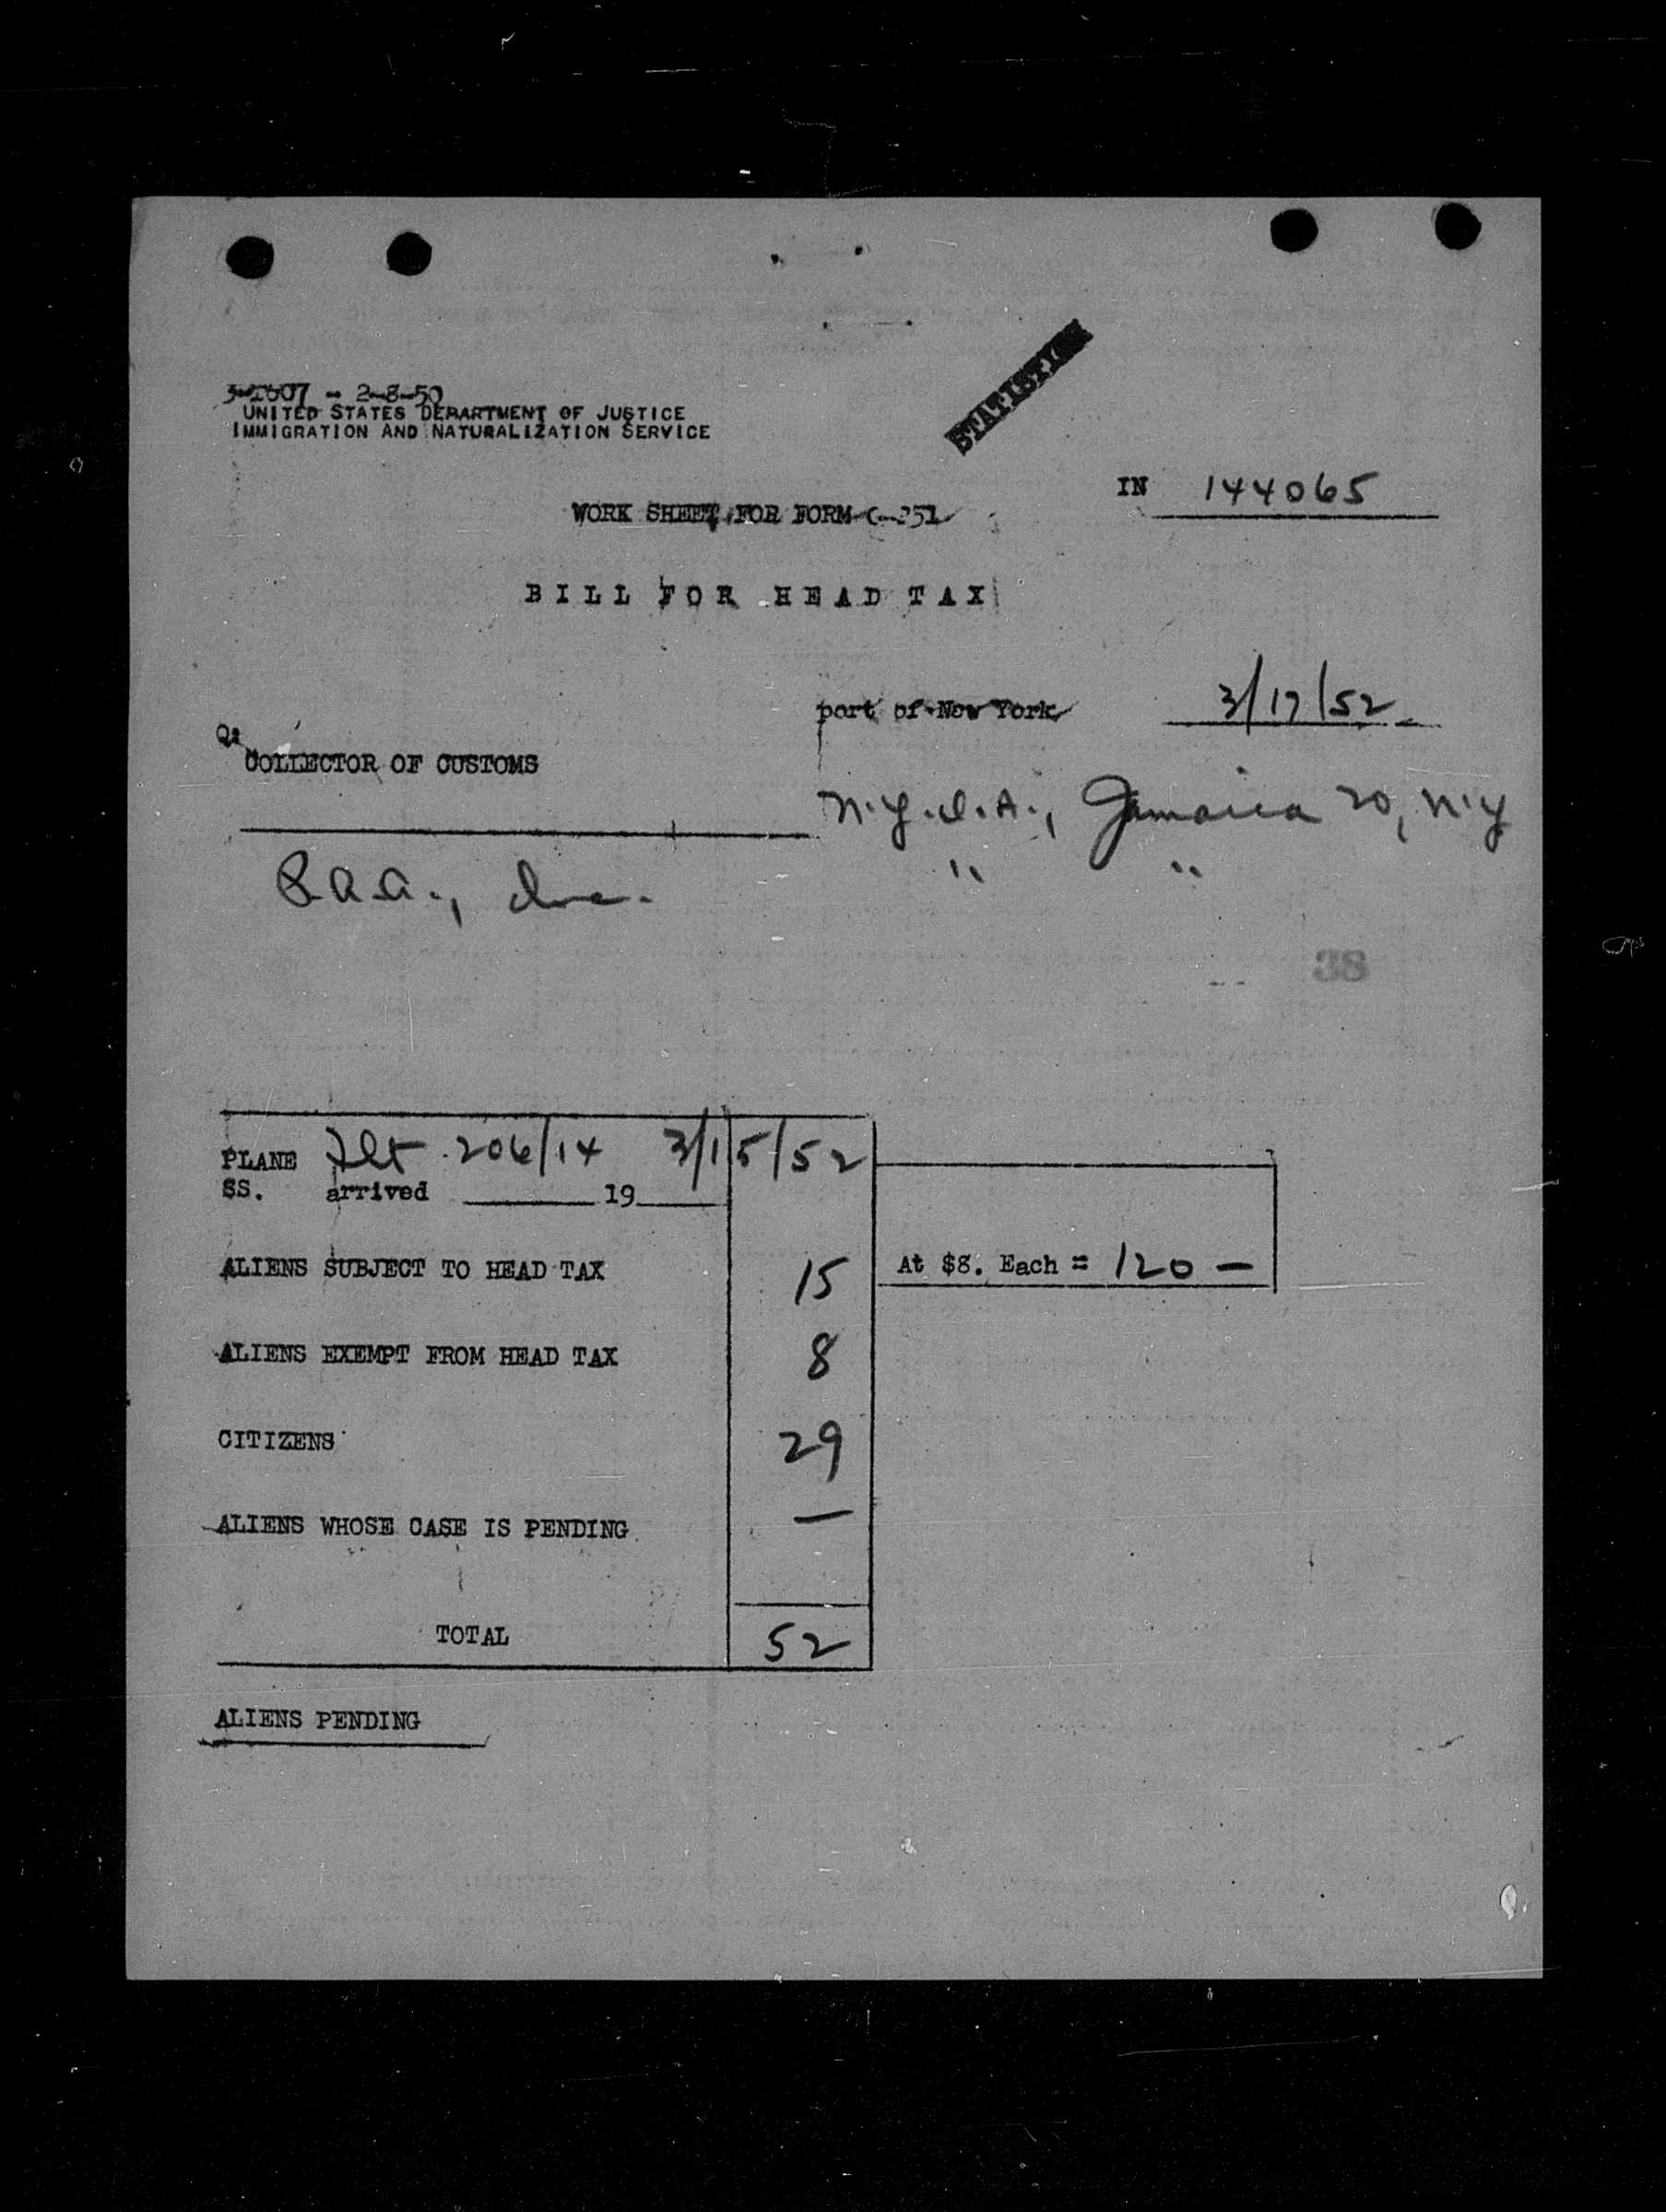 - 2-8-50
UNITED STATES DEPARTMENT OF JUSTICE
IMMIGRATION AND NATURALIZATION SERVICE
STATISTICS
IN 144065
WORK SHEET FOR FORM C-251
BILL FOR HEAD TAX
port of New York 3/17/52
COLLECTOR OF CUSTOMS
N.Y.I.A., Jamaica 20, N.Y
P.A.A., Inc. " "
38
PLANE Flt 206/14 3/15/52
SS. arrived 19
ALIENS SUBJECT TO HEAD TAX 15 At $8. Each = 120 —
ALIENS EXEMPT FROM HEAD TAX 8
CITIZENS 29
ALIENS WHOSE CASE IS PENDING —
TOTAL 52
ALIENS PENDING